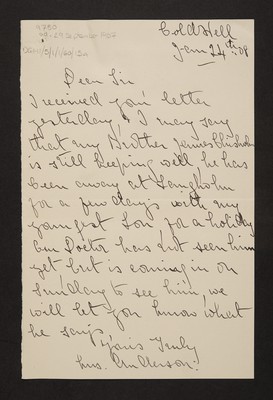 Coldwell
Jan 24th 08
Dear Sir
I received your letter
yesterday, I may say
that my Brother James Chisholm
is still keeping well he has
been away at Langholm
for a few days with my
youngest Son, for a holiday
our Doctor has not seen him
yet but is coming in on
Sunday to see him, we
will let you know what
he says.
Yours Truly
Mrs. Anderson.